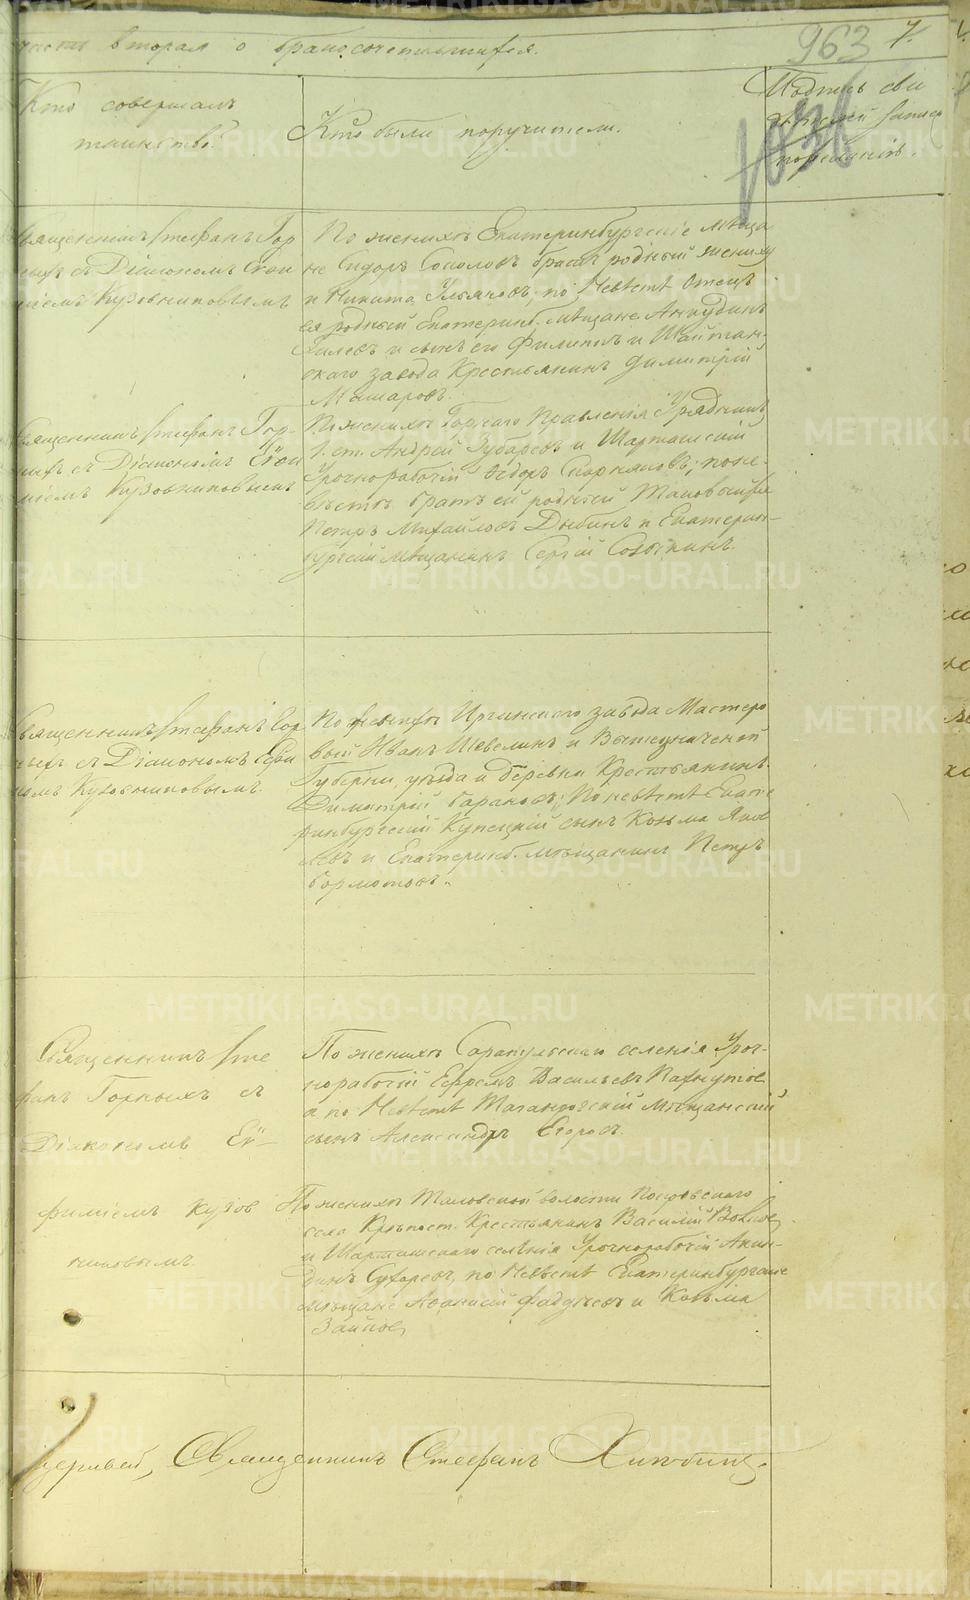 часть вторая о бракосочетавшихся.
963 7.
Кто совершалъ
таинство.
Кто были поручители.
Подпись сви
1036
Священникъ Стефанъ Гор
ныхъ съ Діакономъ Евѳи
міемъ Кузовниковымъ
По женихѣ Екатеринбургскіе мѣща
не Сидоръ Соколовъ братъ родный жениху
и Никита Ульячовъ, по Невѣстѣ Отецъ
ея родный Екатеринб. мѣщане Анкудинъ
и сынъ его Филиппъ и Шайтан-
скаго завода Крестьянинъ Димитрій
Макаровъ.
Священникъ Стефанъ Гор-
ныхъ съ Діакономъ Евѳи
міемъ Кузовниковымъ
По женихѣ Горнаго Правленія Урядникъ
1. ст. Андрей Зубаревъ и Шарташскій
Урочнорабочій Ѳедоръ по не-
вѣстѣ братъ ей родный
Петръ Михайловъ Дыбинъ и Екатерин-
бургскій мѣщанинъ Сергій
Священникъ Стефанъ Гор
ныхъ съ Діакономъ Евѳи
міемъ Кузовниковымъ
По женихѣ Иргинскаго завода Мастеро
вый Иванъ Шевелинъ и Вышеозначенной
Губерніи, уѣзда и деревни Крестьянинъ
Димитрій Барановъ; По невѣстѣ Екате
ринбургскій Купецкій сынъ Козьма Яков
левъ и Екатеринб. мѣщанинъ Петръ
Бормотовъ.
Священникъ Сте
фанъ Горныхъ съ
Діакономъ Еѵ-
фиміемъ Кузов
никовымъ.
По женихѣ Сарапульскаго селенія Уроч-
норабочій Ефремъ Васильевъ Пафнутіев
а по Невѣстѣ Таганрогскій Мѣщанскій
сынъ Александръ Егоровъ.
По женихѣ волости Покровскаго
села Крѣпост. Крестьянинъ Василій Волков
и Шарташскаго селенія Урочнорабочій Анкин-
динъ Суфаревъ, по Невѣстѣ Екатеринбургскіе
мѣщане Аѳанасій Фаддѣевъ и Козьма
Зайков
церквей, Священникъ Стефанъ Хлѣбинъ.
METRIKI.GASO-URAL.RU